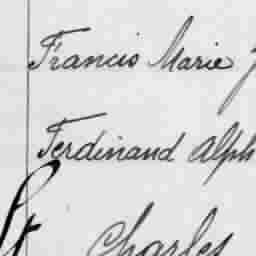 Francis Marie
Ferdinand Alph
Charles